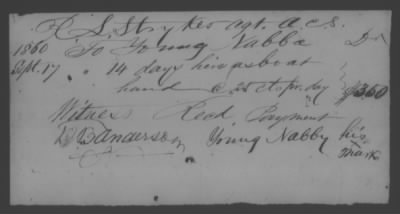 H. S. Stryker agt. A.C.S.
1860 To Young Nabba Dr
Sept. 17 " 14 days hire as boat
hand @ 25 cts pr. day $3.50
Witness Recd Payment
Young Nabby his
mark